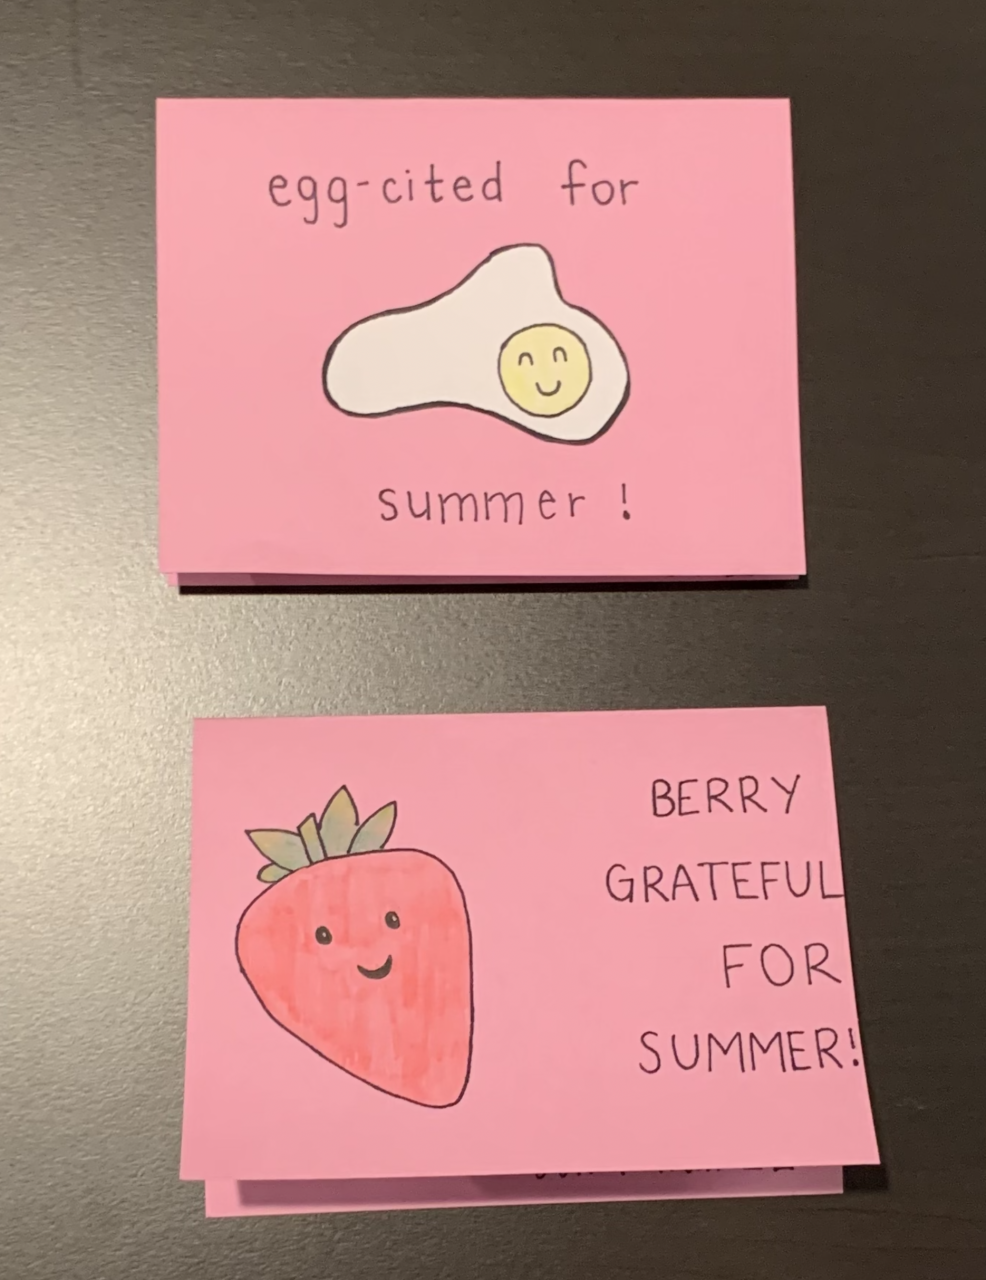 egg-cited for
summer !
BERRY
GRATEFUL
FOR
SUMMER!